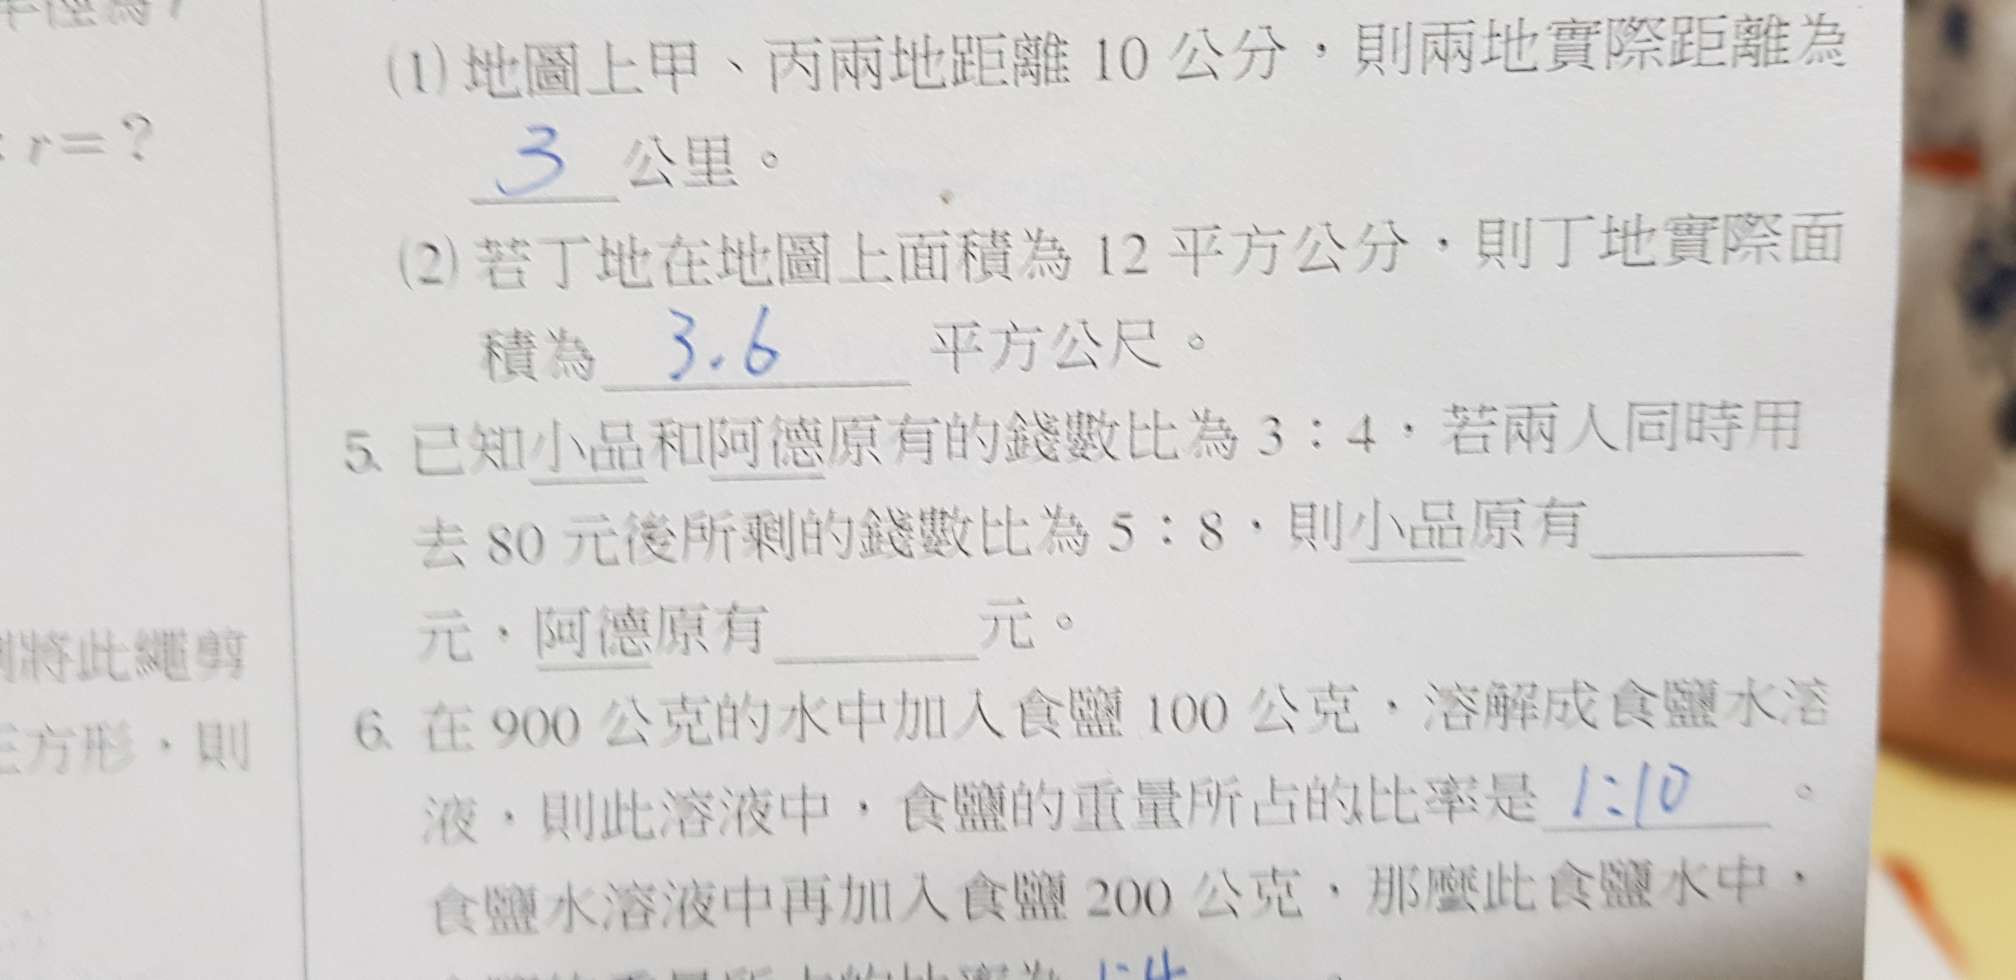 (1) 地圖上甲、丙兩地距離 10 公分，則兩地實際距離為
3 公里。
(2) 若丁地在地圖上面積為 12 平方公分，則丁地實際面
積為 3.6 平方公尺。
: r=?
5. 已知小品和阿德原有的錢數比為 3：4，若兩人同時用
去 80 元後所剩的錢數比為 5：8，則小品原有
元，阿德原有 元。
將此繩剪
方形，則
6. 在 900 公克的水中加入食鹽 100 公克，溶解成食鹽水溶
液，則此溶液中，食鹽的重量所占的比率是 1:10 。
食鹽水溶液中再加入食鹽 200 公克，那麼此食鹽水中，
1:4